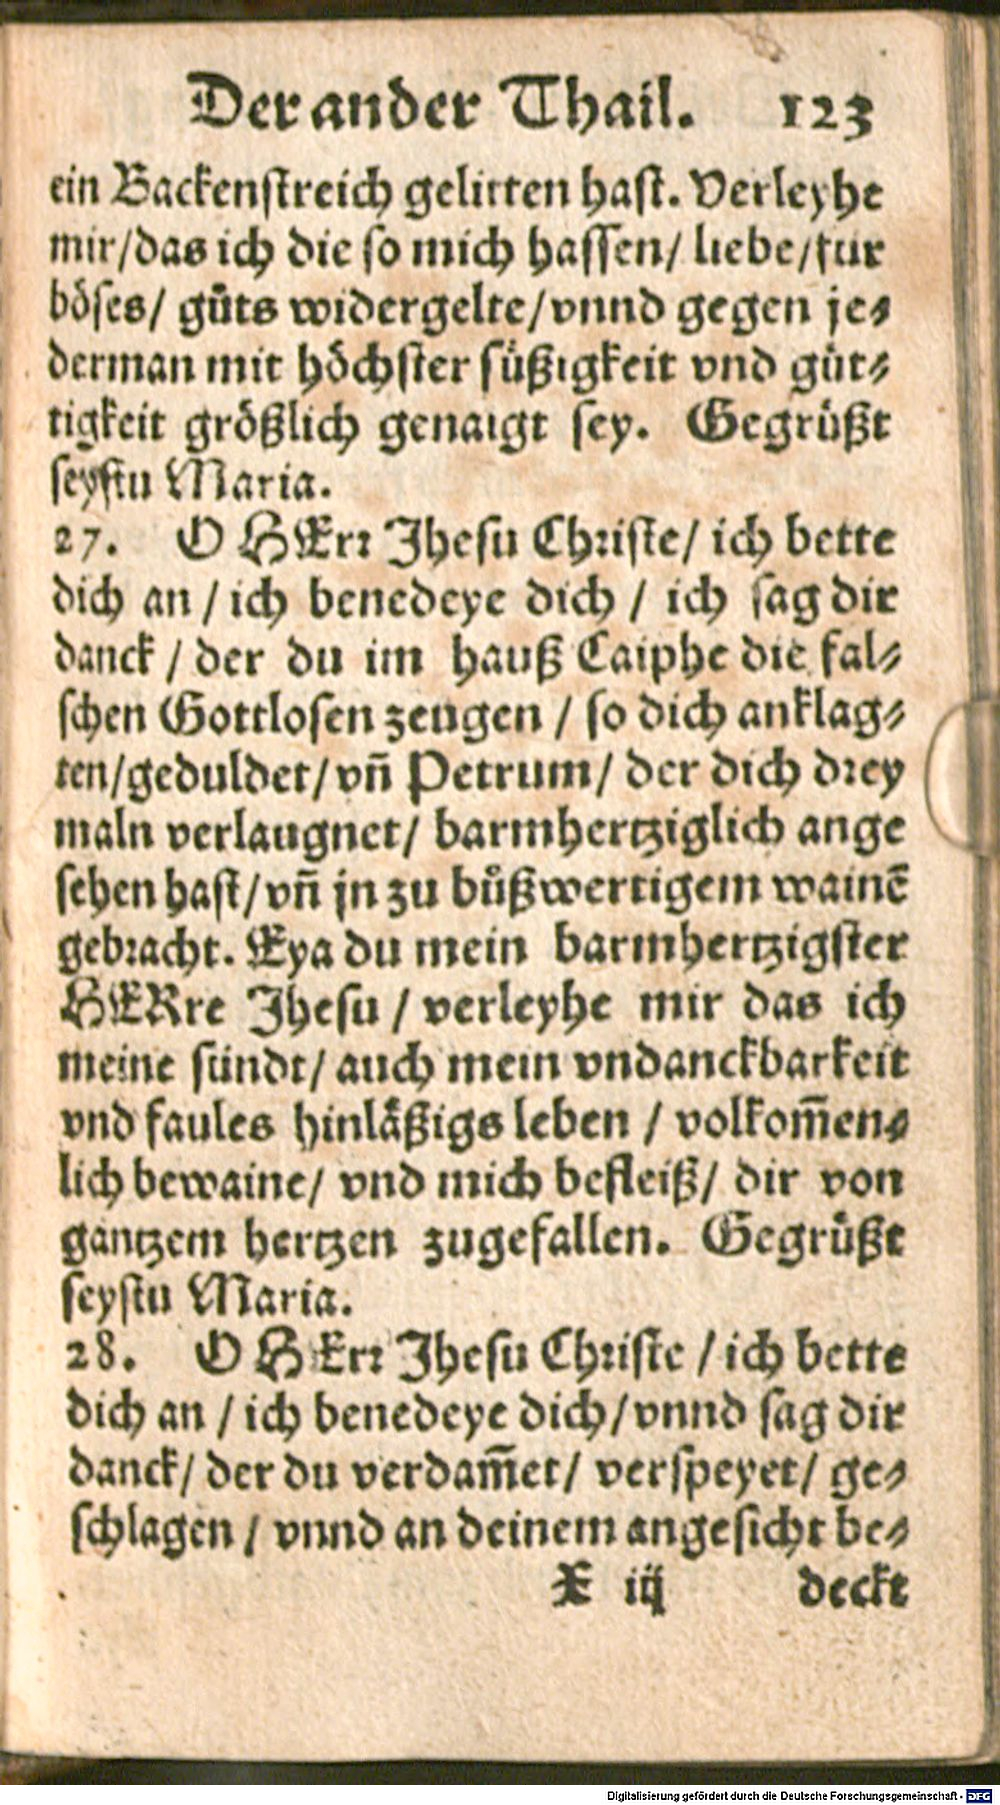 Der ander Thail. 123
ein Backenſtreich gelitten haſt. Verleyhe
mir/das ich die ſo mich haſſen/ liebe/fur
böſes/ gůts widergelte/vnnd gegen je⸗
derman mit höchſter ſüßigkeit vnd güt⸗
tigkeit größlich genaigt ſey. Gegrüßt
ſeyſtu Maria.
27. O HErr Jheſu Chriſte/ ich bette
dich an / ich benedeye dich / ich ſag dir
danck / der du im hauß Caiphe die fal⸗
ſchen Gottloſen zeugen / ſo dich anklag⸗
ten/geduldet/vñ Petrum/ der dich drey
maln verlaugnet/ barmhertziglich ange
ſehen haſt/vñ jn zu bůßwertigem wainẽ
gebracht. Eya du mein barmhertzigſter
HERre Jheſu / verleyhe mir das ich
meine ſündt/ auch mein vndanckbarkeit
vnd faules hinläßigs leben / volkom̃en⸗
lich bewaine/ vnd mich befleiß/ dir von
gantzem hertzen zugefallen. Gegrüßt
ſeyſtu Maria.
28. O HErr Jheſu Chriſte / ich bette
dich an / ich benedeye dich/vnnd ſag dir
danck/ der du verdam̃et/ verſpeyet/ ge⸗
ſchlagen / vnnd an deinem angeſicht be⸗
X iij deckt
Digitalisierung gefördert durch die Deutsche Forschungsgemeinschaft - DFG